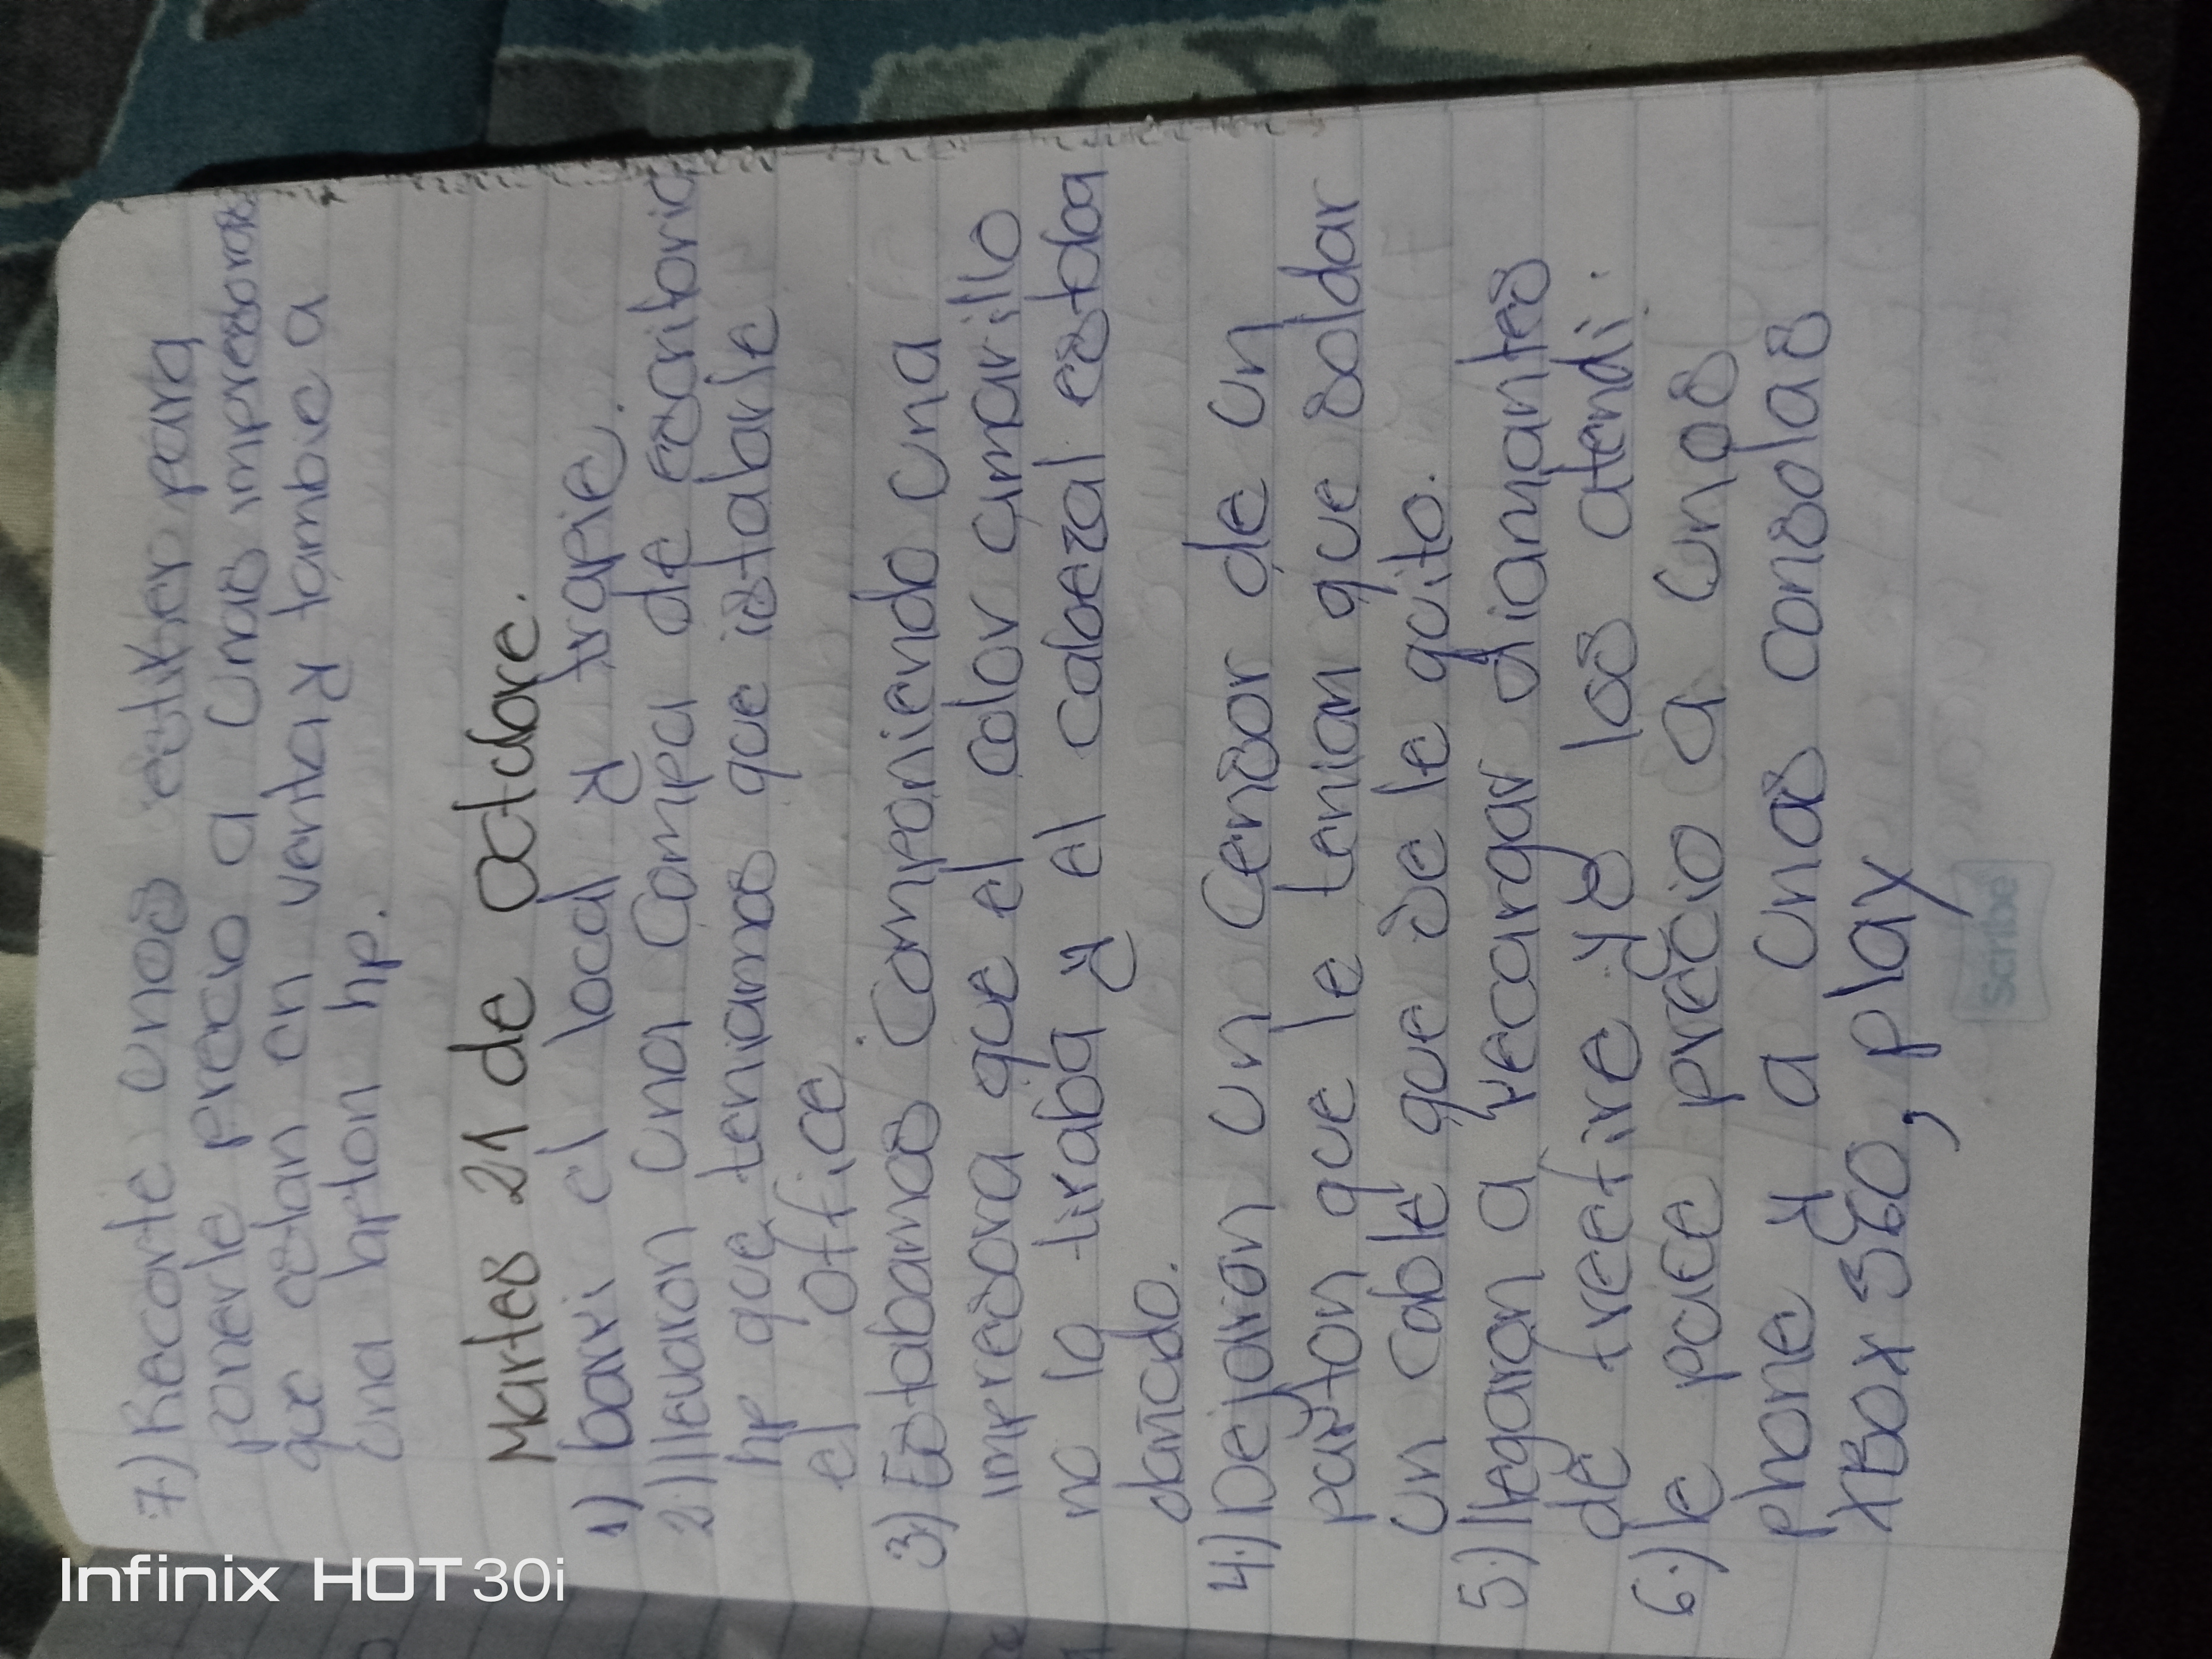 7.) Recorte unos estiker para
ponerle precio a unas impresoras
que estan en venta y tambie a
una lapton hp.
Martes 21 de octdore.
1) barri el local y trapie.
2.) llevaron una compu de escritorio
hp que teniamos que istalarle
el office
3.) Estabamos componiendo una
impresora que el color amarillo
no lo tiraba y el cabezal estba
dañado.
4.) Dejaron un censor de un
parton que le tenian que soldar
un cable que se le quito.
5.) llegaron a recargar diamantes
de freefire y yo los atendi.
6.) le puce precio a unos
phone y a unas consolas
XBOX 360, play
scribe
Infinix HOT 30i